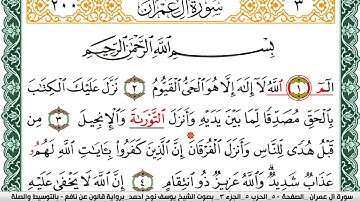 ٢٠٠ سُورَةُ آلِ عِمْرَانَ ٣
بِسْمِ اللَّهِ الرَّحْمَٰنِ الرَّحِيمِ
الٓمٓ ١ اَللَّهُ لَآ إِلَٰهَ إِلَّا هُوَ الْحَيُّ الْقَيُّومُ ٢ نَزَّلَ عَلَيْكَ الْكِتَٰبَ
بِالْحَقِّ مُصَدِّقًا لِّمَا بَيْنَ يَدَيْهِ وَأَنزَلَ التَّوْرَىٰةَ وَالْإِنجِيلَ ٣ مِن
قَبْلُ هُدًى لِّلنَّاسِ وَأَنزَلَ الْفُرْقَانَ إِنَّ الَّذِينَ كَفَرُوا بِـَٔايَٰتِ اللَّهِ لَهُمُۥ
عَذَابٌ شَدِيدٌ وَاللَّهُ عَزِيزٌ ذُو انتِقَامٍ ٤ إِنَّ اللَّهَ لَا يَخْفَىٰ عَلَيْهِ
سورة آل عمران - الصفحة ٥٠ - الحزب ٥ - الجزء ٣ - بصوت الشيخ يوسف نوح احمد - برواية قالون عن نافع - بالتوسيط والصلة